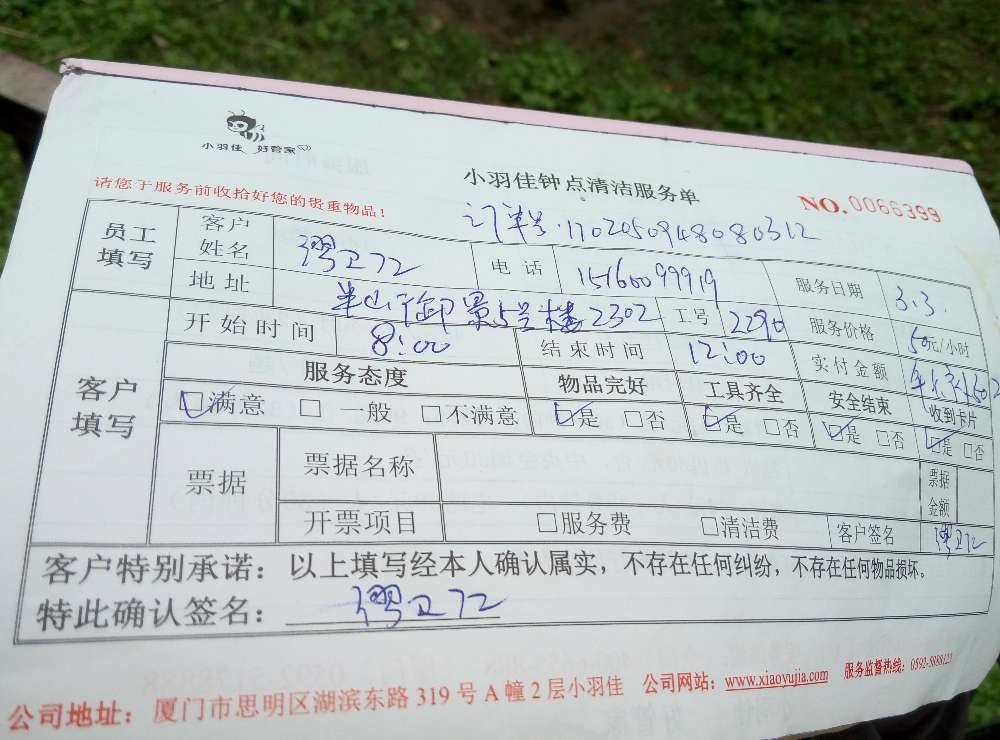 小羽佳 好管家
小羽佳钟点清洁服务单
请您于服务前收拾好您的贵重物品！
NO.0066399
订单号:1702050948080312
员工填写 客户姓名 电话 15160099919 服务日期 3.3.
地址 半山御景5号楼2302 工号 2296 服务价格 50元/小时
客户填写 开始时间 8:00 结束时间 12:00 实付金额
服务态度 物品完好 工具齐全 安全结束 收到卡片
☑满意 □一般 □不满意 ☑是 □否 ☑是 □否 ☑是 □否 ☑是 □否
票据 票据名称 票据金额
开票项目 □服务费 □清洁费 客户签名
客户特别承诺：以上填写经本人确认属实，不存在任何纠纷，不存在任何物品损坏。
特此确认签名：
公司地址：厦门市思明区湖滨东路319号A幢2层小羽佳 公司网站：www.xiaoyujia.com 服务监督热线：0592-